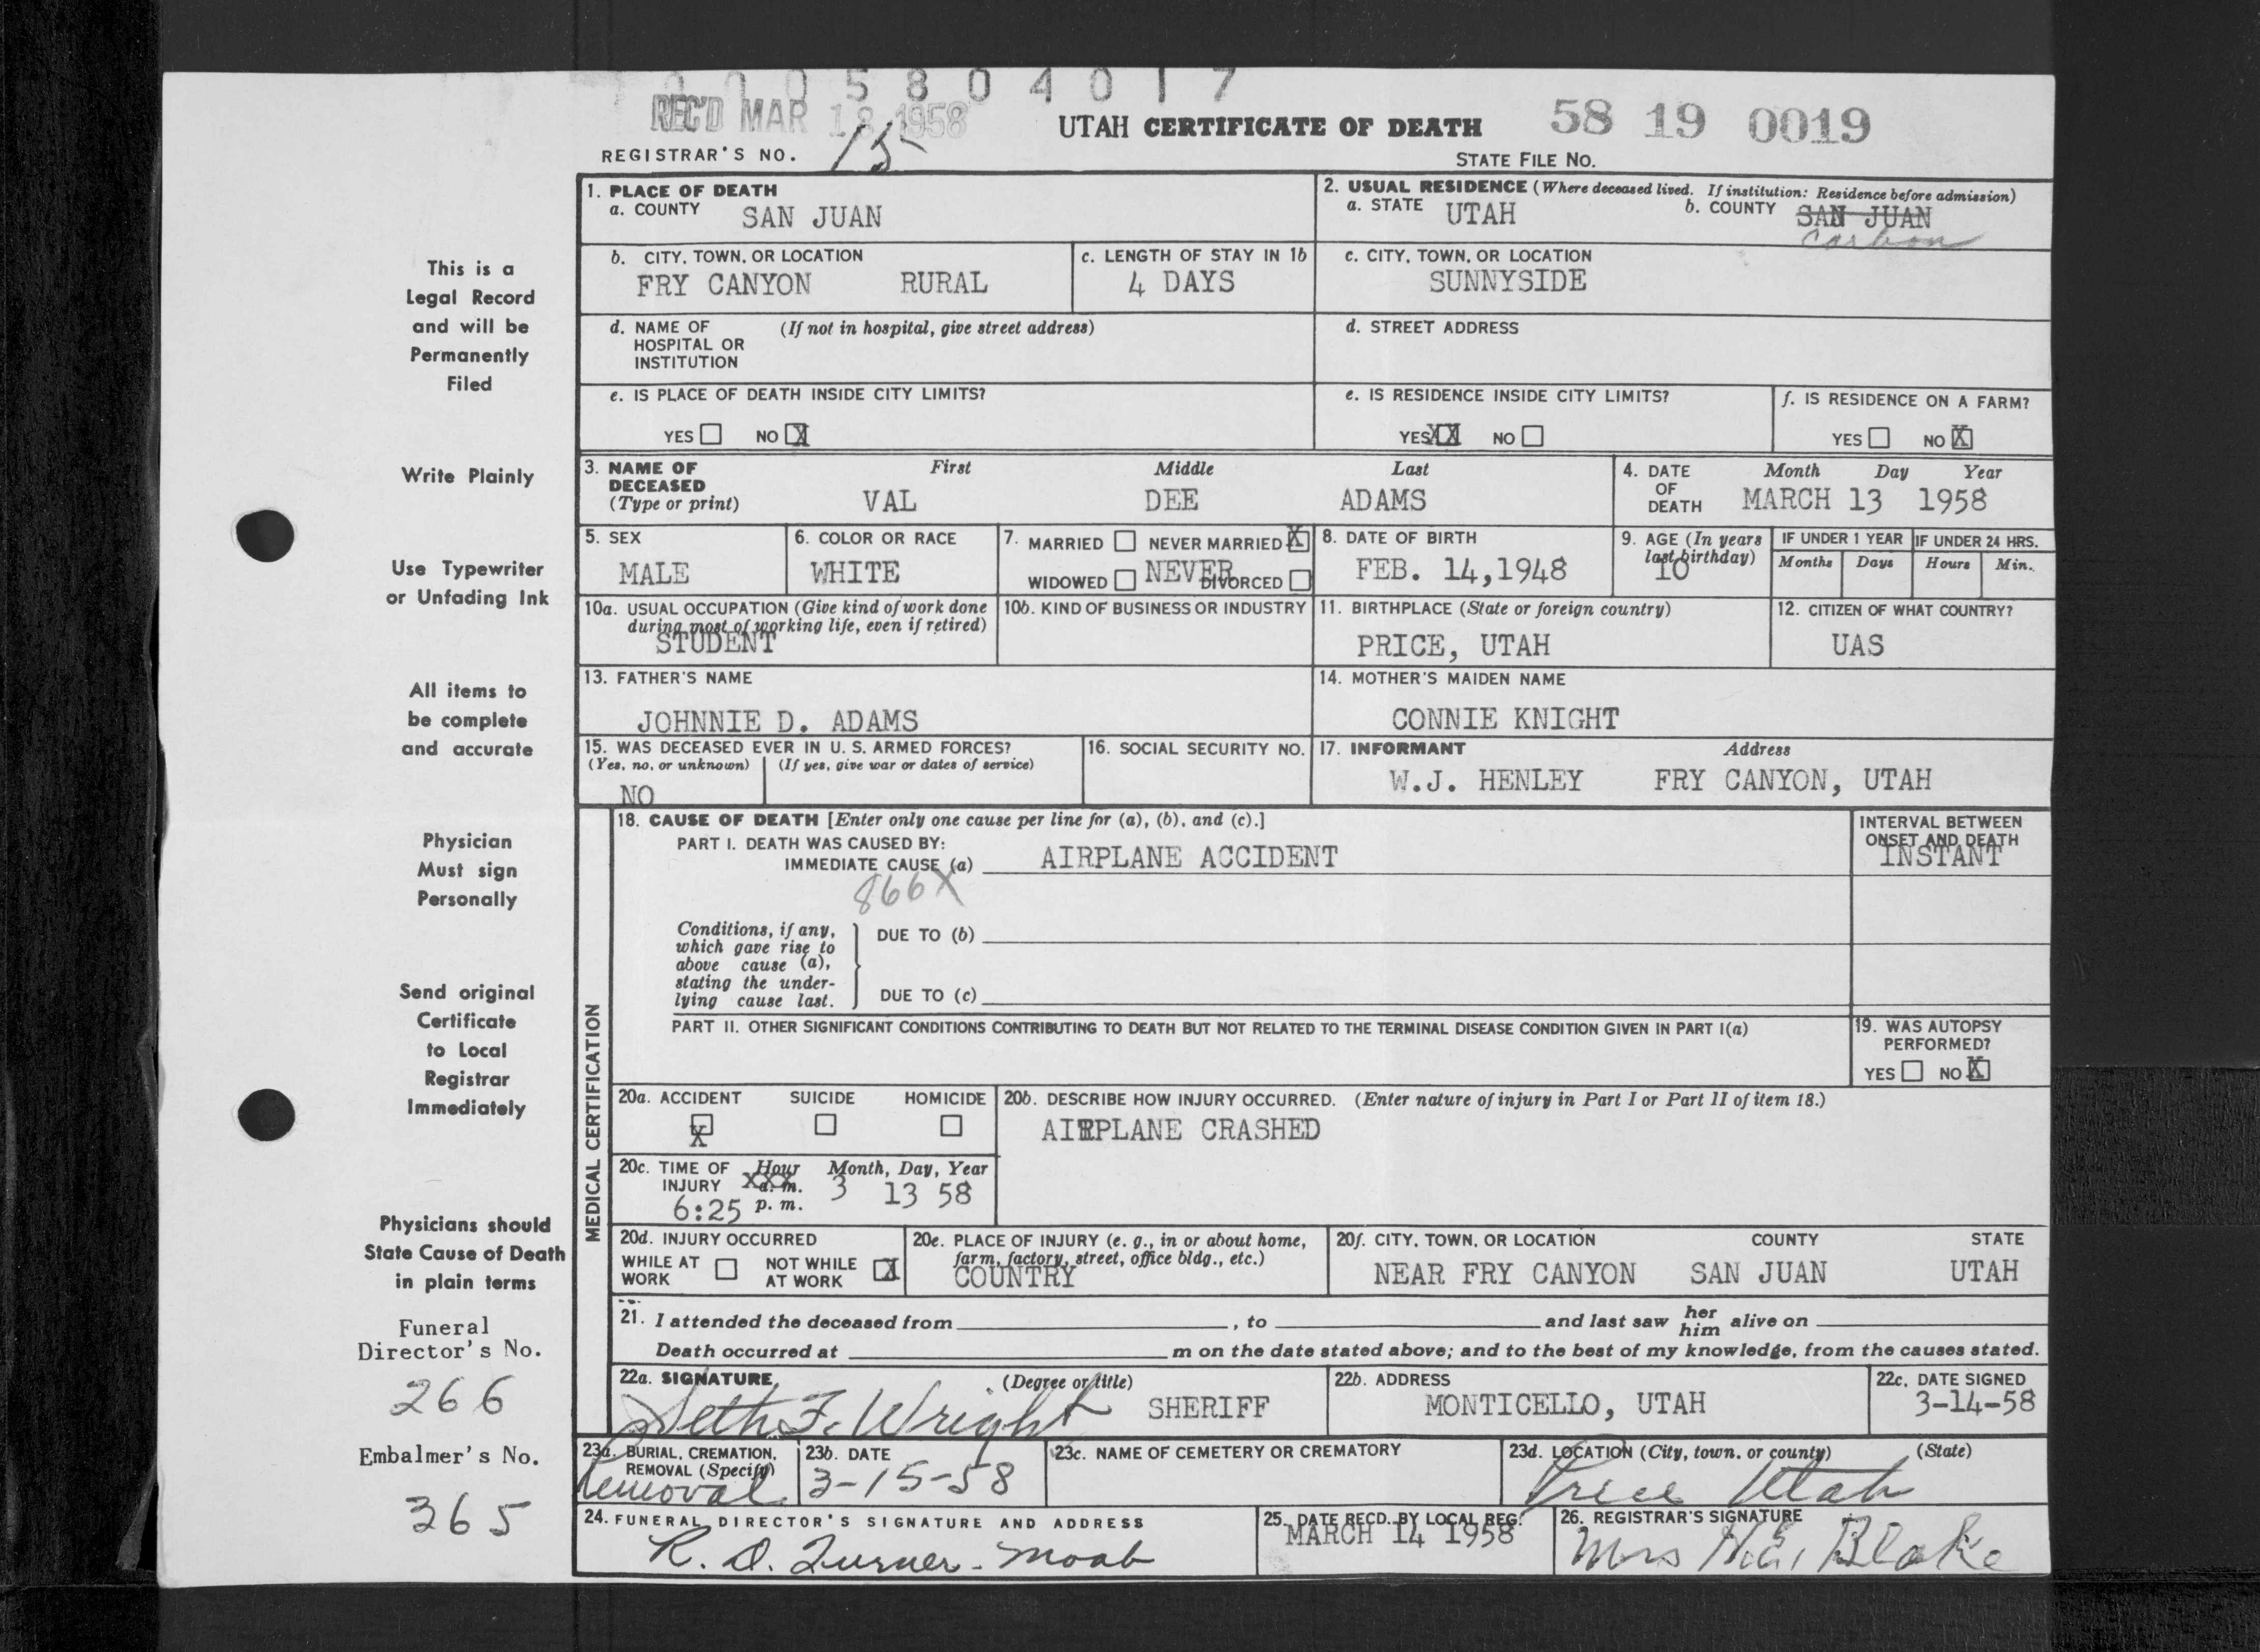 5 8 0 4 0 1 7
REC'D MAR 1958
UTAH CERTIFICATE OF DEATH
58 19 0019
REGISTRAR'S NO. 15
STATE FILE NO.
This is a
Legal Record
and will be
Permanently
Filed
Write Plainly
Use Typewriter
or Unfading Ink
All items to
be complete
and accurate
Physician
Must sign
Personally
Send original
Certificate
to Local
Registrar
Immediately
Physicians should
State Cause of Death
in plain terms
Funeral
Director's No.
266
Embalmer's No.
365
1. PLACE OF DEATH
a. COUNTY SAN JUAN
2. USUAL RESIDENCE (Where deceased lived. If institution: Residence before admission)
a. STATE UTAH b. COUNTY SAN JUAN
Carbon
b. CITY, TOWN, OR LOCATION
FRY CANYON RURAL
c. LENGTH OF STAY IN 1b
4 DAYS
c. CITY, TOWN, OR LOCATION
SUNNYSIDE
d. NAME OF (If not in hospital, give street address)
HOSPITAL OR
INSTITUTION
d. STREET ADDRESS
e. IS PLACE OF DEATH INSIDE CITY LIMITS?
YES NO X
e. IS RESIDENCE INSIDE CITY LIMITS?
YES XX NO
f. IS RESIDENCE ON A FARM?
YES NO X
3. NAME OF DECEASED (Type or print)
First Middle Last
VAL DEE ADAMS
4. DATE OF DEATH
Month Day Year
MARCH 13 1958
5. SEX
MALE
6. COLOR OR RACE
WHITE
7. MARRIED NEVER MARRIED X
WIDOWED NEVER DIVORCED
8. DATE OF BIRTH
FEB. 14,1948
9. AGE (In years
last birthday)
10
IF UNDER 1 YEAR IF UNDER 24 HRS.
Months Days Hours Min.
10a. USUAL OCCUPATION (Give kind of work done
during most of working life, even if retired)
STUDENT
10b. KIND OF BUSINESS OR INDUSTRY
11. BIRTHPLACE (State or foreign country)
PRICE, UTAH
12. CITIZEN OF WHAT COUNTRY?
UAS
13. FATHER'S NAME
JOHNNIE D. ADAMS
14. MOTHER'S MAIDEN NAME
CONNIE KNIGHT
15. WAS DECEASED EVER IN U. S. ARMED FORCES?
(Yes, no, or unknown) (If yes, give war or dates of service)
NO
16. SOCIAL SECURITY NO.
17. INFORMANT Address
W.J. HENLEY FRY CANYON, UTAH
MEDICAL CERTIFICATION
18. CAUSE OF DEATH [Enter only one cause per line for (a), (b), and (c).]
PART I. DEATH WAS CAUSED BY:
IMMEDIATE CAUSE (a) AIRPLANE ACCIDENT
866X
INTERVAL BETWEEN
ONSET AND DEATH
INSTANT
Conditions, if any,
which gave rise to
above cause (a),
stating the under-
lying cause last.
DUE TO (b)
DUE TO (c)
PART II. OTHER SIGNIFICANT CONDITIONS CONTRIBUTING TO DEATH BUT NOT RELATED TO THE TERMINAL DISEASE CONDITION GIVEN IN PART I(a)
19. WAS AUTOPSY
PERFORMED?
YES NO X
20a. ACCIDENT SUICIDE HOMICIDE
X
20b. DESCRIBE HOW INJURY OCCURRED. (Enter nature of injury in Part I or Part II of item 18.)
AIRPLANE CRASHED
20c. TIME OF Hour Month, Day, Year
INJURY XXX a. m. 3 13 58
6:25 p. m.
20d. INJURY OCCURRED
WHILE AT WORK NOT WHILE AT WORK X
20e. PLACE OF INJURY (e. g., in or about home,
farm, factory, street, office bldg., etc.)
COUNTRY
20f. CITY, TOWN, OR LOCATION COUNTY STATE
NEAR FRY CANYON SAN JUAN UTAH
21. I attended the deceased from , to and last saw her him alive on
Death occurred at m on the date stated above; and to the best of my knowledge, from the causes stated.
22a. SIGNATURE (Degree or title)
Seth F. Wright SHERIFF
22b. ADDRESS
MONTICELLO, UTAH
22c. DATE SIGNED
3-14-58
23a. BURIAL, CREMATION,
REMOVAL (Specify)
Removal
23b. DATE
3-15-58
23c. NAME OF CEMETERY OR CREMATORY
23d. LOCATION (City, town, or county) (State)
Price Utah
24. FUNERAL DIRECTOR'S SIGNATURE AND ADDRESS
R. D. Turner - Moab
25. DATE RECD. BY LOCAL REG.
MARCH 14 1958
26. REGISTRAR'S SIGNATURE
Mrs H.E. Blake